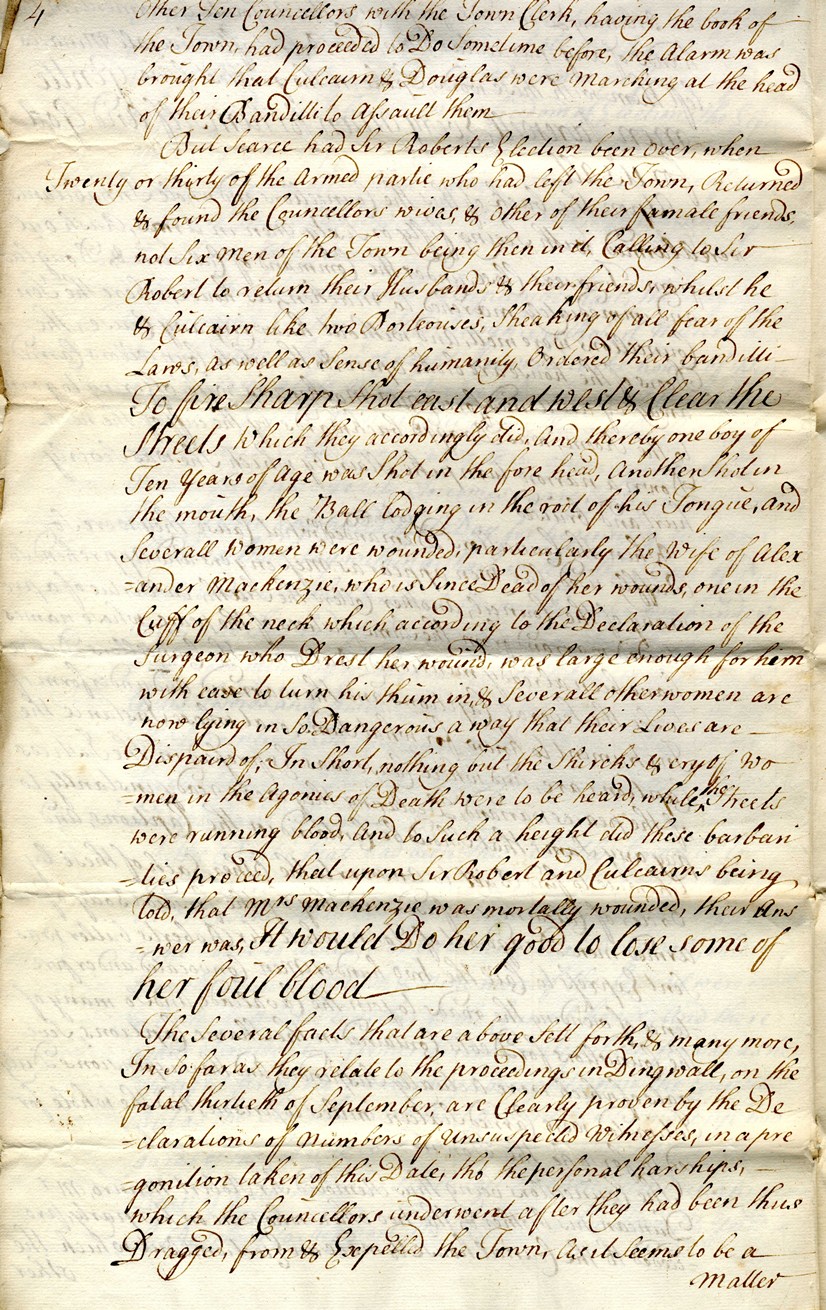 4
Other Ten Councellors with the Town Clerk, having the book of
the Town, had proceeded to Do Sometime before, the Alarm was
brought that Culcairn & Douglas were marching at the head
of their Banditti to assault them
But scarce had Sir Roberts Election been over, when
Twenty or thirty of the Armed partie who had left the Town, Returned
& found the Councellors wives, & other of their famale friends,
not Six men of the Town being then in it, Calling to Sir
Robert to return their Husbands & their friends, whilst he
& Culcairn like two Porteouses, Sheaking of all fear of the
Laws, as well as Sense of humanity, Ordered their banditti
To fire Sharp Shot east and west & Clear the
Streets which they accordingly did, And thereby one boy of
Ten Years of Age was Shot in the fore head, Another Shot in
the mouth, the Ball lodging in the root of his Tongue, And
Severall women were wounded, particularly the Wife of Alex
=ander Mackenzie, who is Since Dead of her wounds, one in the
Cuff of the neck which according to the Declaration of the
Surgeon who Drest her wound, was large enough for him
with ease to turn his thum in, & Severall other women are
now lying in So Dangerous a way that their Lives are
Dispaird of; In Short, nothing but the Shireks & cry of Wo
=men in the Agonies of Death were to be heard, while the Streets
were running blood, And to Such a height did these barbari
=ties proceed, that upon Sir Robert and Culcairns being
told, that Mrs Mackenzie was mortally wounded, their Ans
=wer was, It would Do her good to lose some of
her foul blood
The Several facts that are above Sett forth, & many more,
In So far as they relate to the proceedings in Dingwall, on the
fatal thirtieth of September, are Clearly proven by the De
=clarations of numbers of unsuspected Witnesses, in a pre
=gonition taken of this Date, tho the personal harships,
which the Councellors underwent after they had been thus
Dragged, from & Expelled the Town, As it Seems to be a
matter